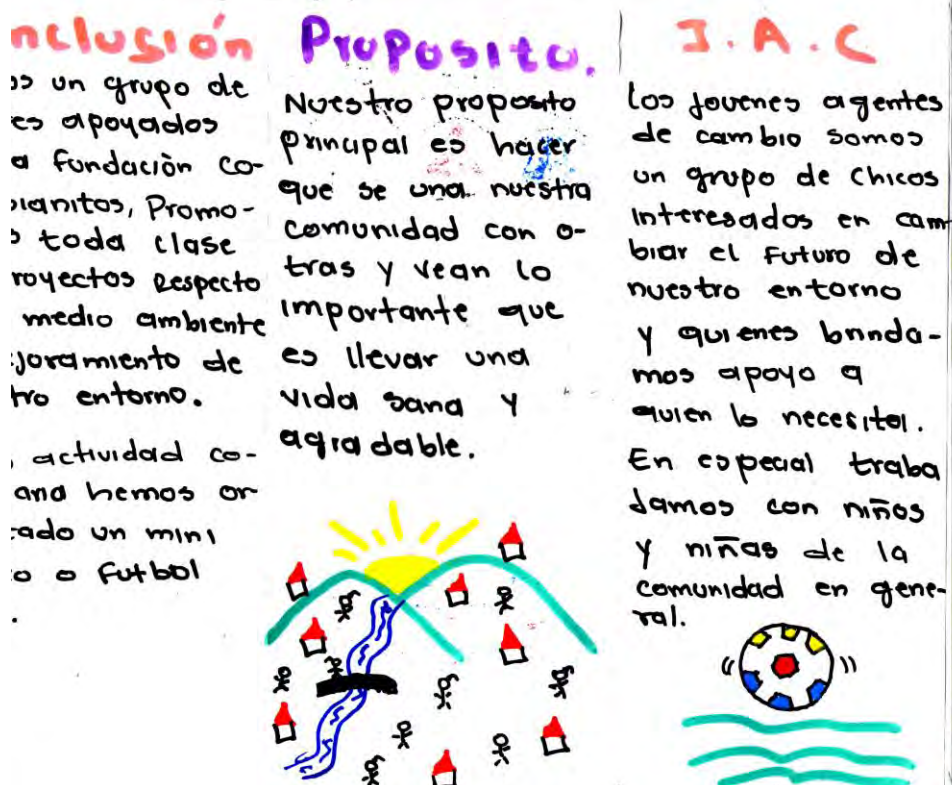 nclusión
os un grupo de
es apoyados
a fundación co-
bianitos, Promo-
s toda clase
royectos Respecto
medio ambiente
joramiento de
tro entorno.
actividad co-
ana hemos or
zado un mini
o o Futbol
.
Proposito.
Nuestro proposito
principal es hacer
que se una nuestra
comunidad con o-
tras y vean lo
importante que
es llevar una
vida sana y
agradable.
J.A.C
los jovenes agentes
de cambio somos
un grupo de chicos
interesados en cam
biar el Futuro de
nuestro entorno
y quienes brinda-
mos apoyo a
quien lo necesita.
En especial traba
Jamos con niños
y niñas de la
comunidad en gene-
ral.